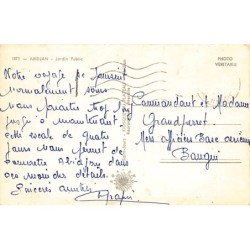 1471 - ABIDJAN - Jardin Public
PHOTO
VERITABLE
Notre voyage se poursuit
normalement sans
nous paraître trop long
jusqu'à maintenant.
cette escale de quatre
jours nous permet de
connaître Abidjan dans
ses moindres détails.
Sincères amitiés
Commandant et Madame
Grandperret
Base aérienne
Bangui